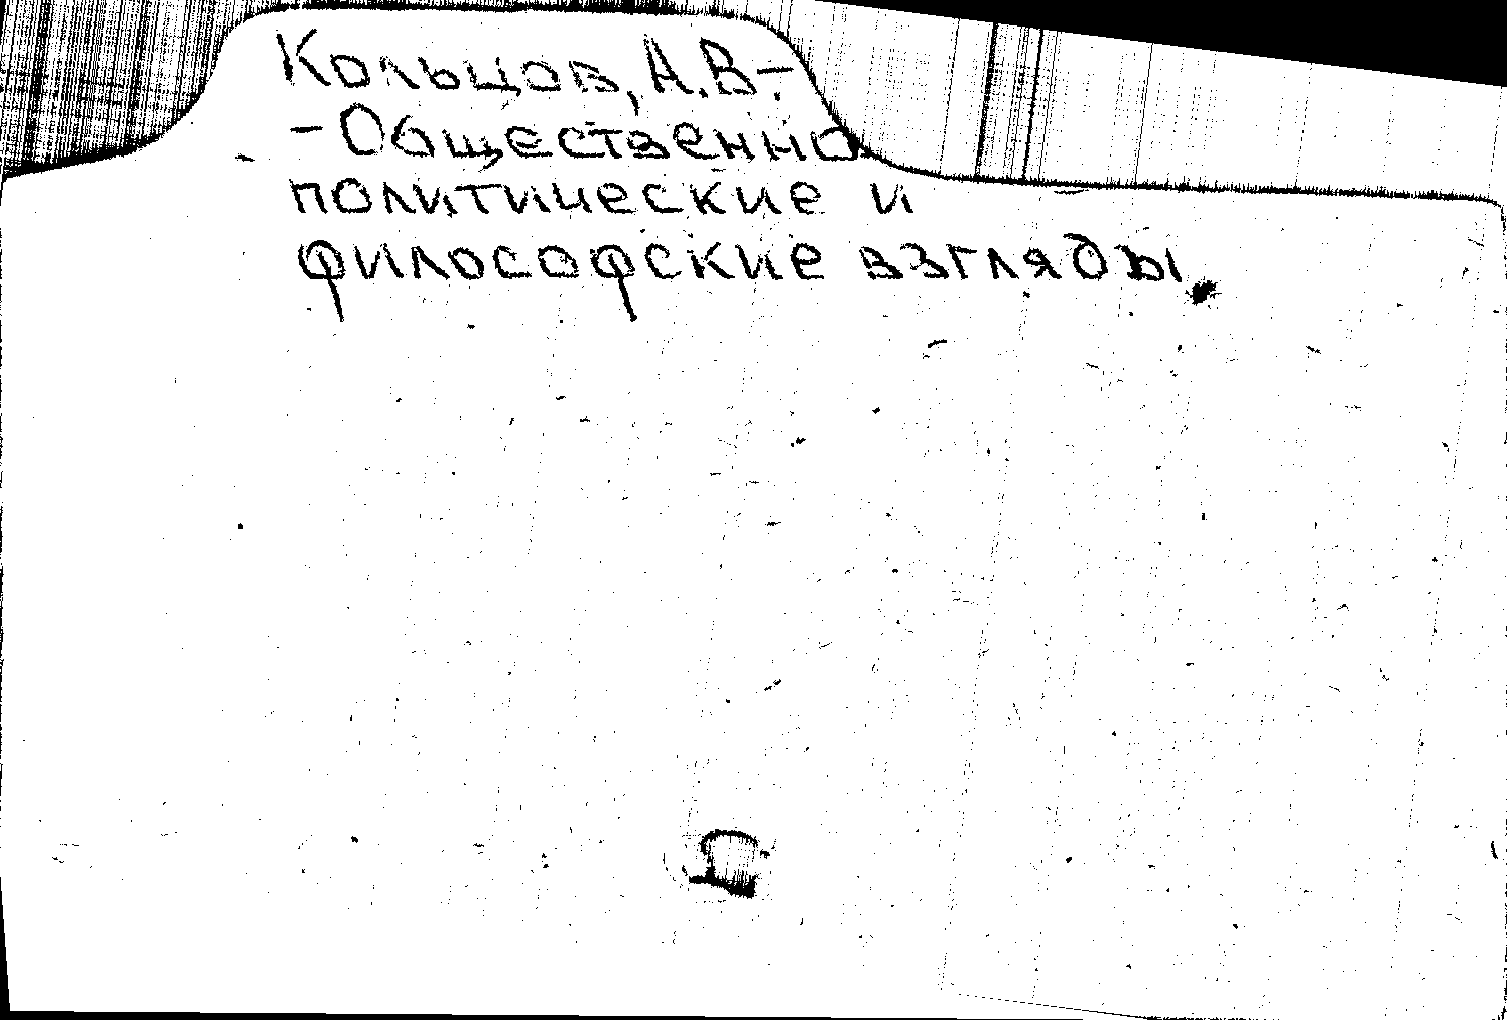 Кольцов, А.В.-
-Общественно
политические и
философские взгляды